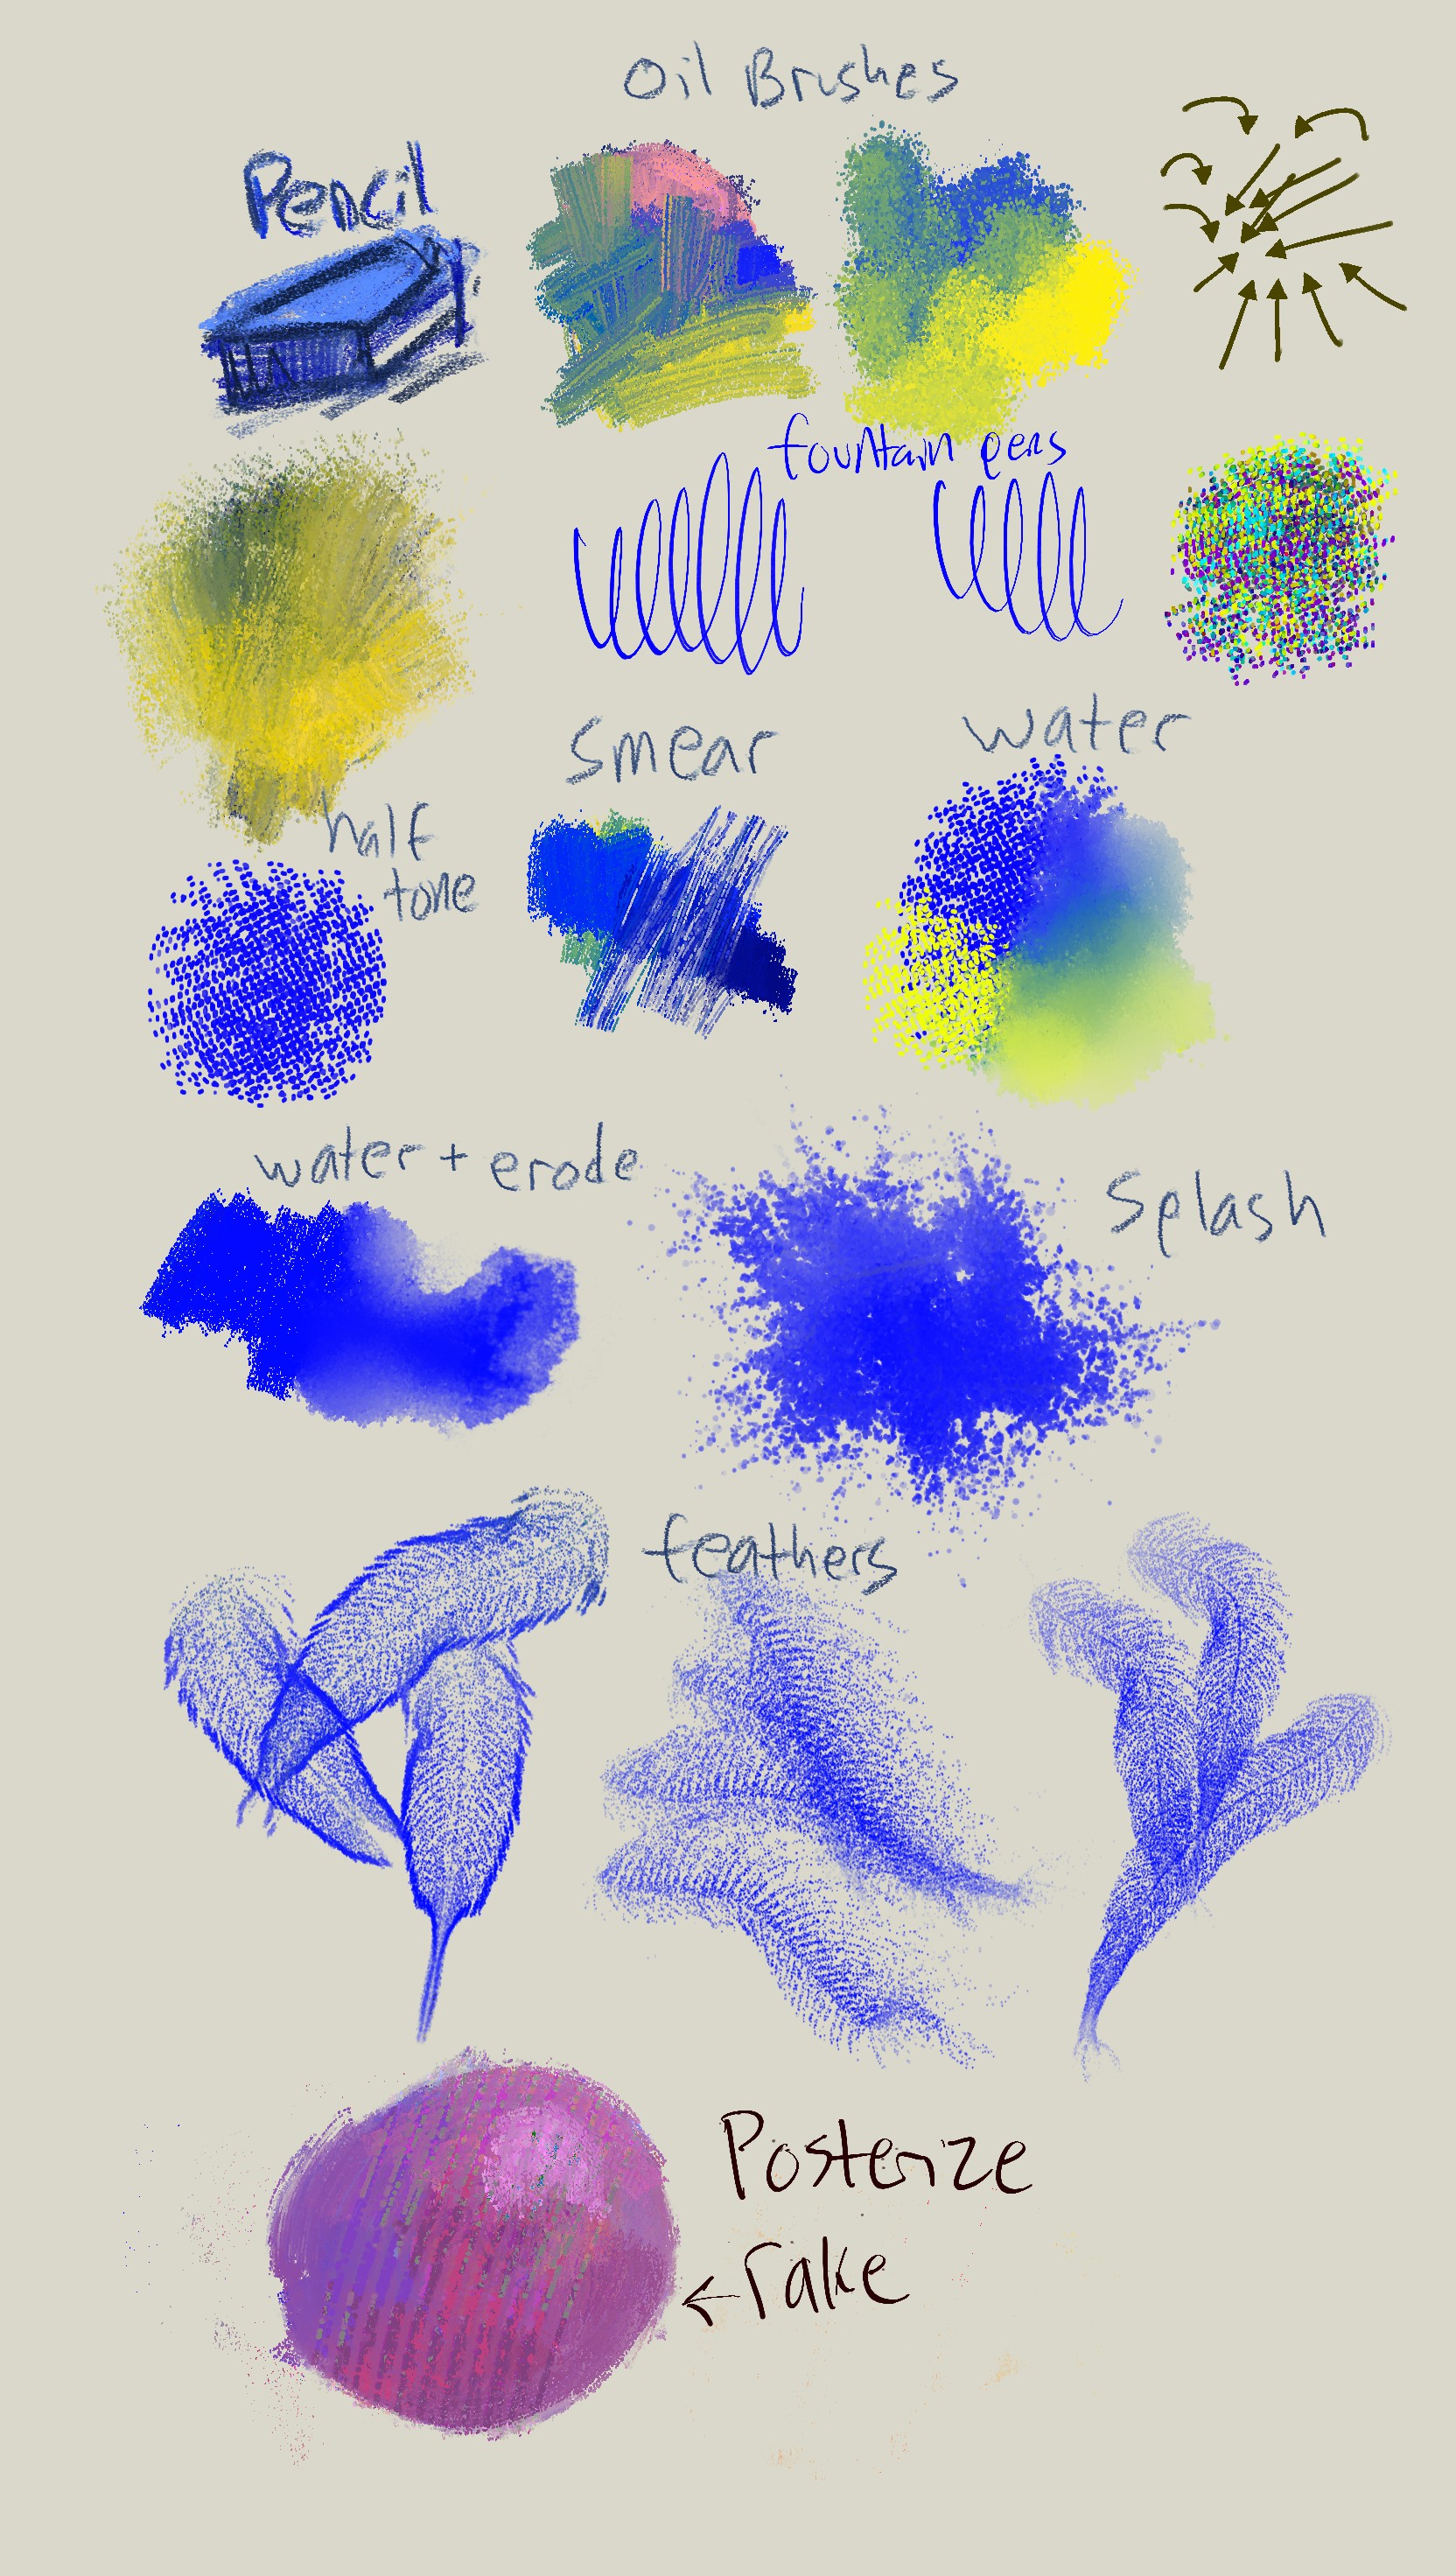 Oil Brushes
Pencil
fountain pens
smear
water
half
tone
water + erode
Splash
feathers
Posterize
←rake